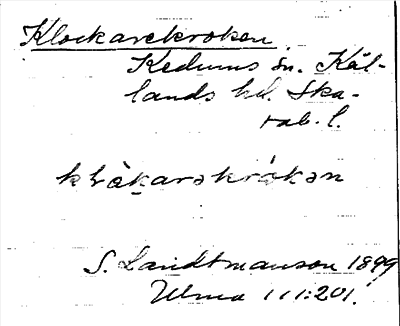 Klockarekroken
Kedums sn. Kål-
lands hd. Ska-
rab. l.
klåkarəkrókən
S. Landtmanson 1899
Ulma 111:201.